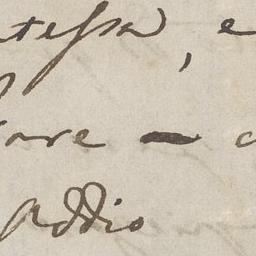 tessa, e
are — a
Addio